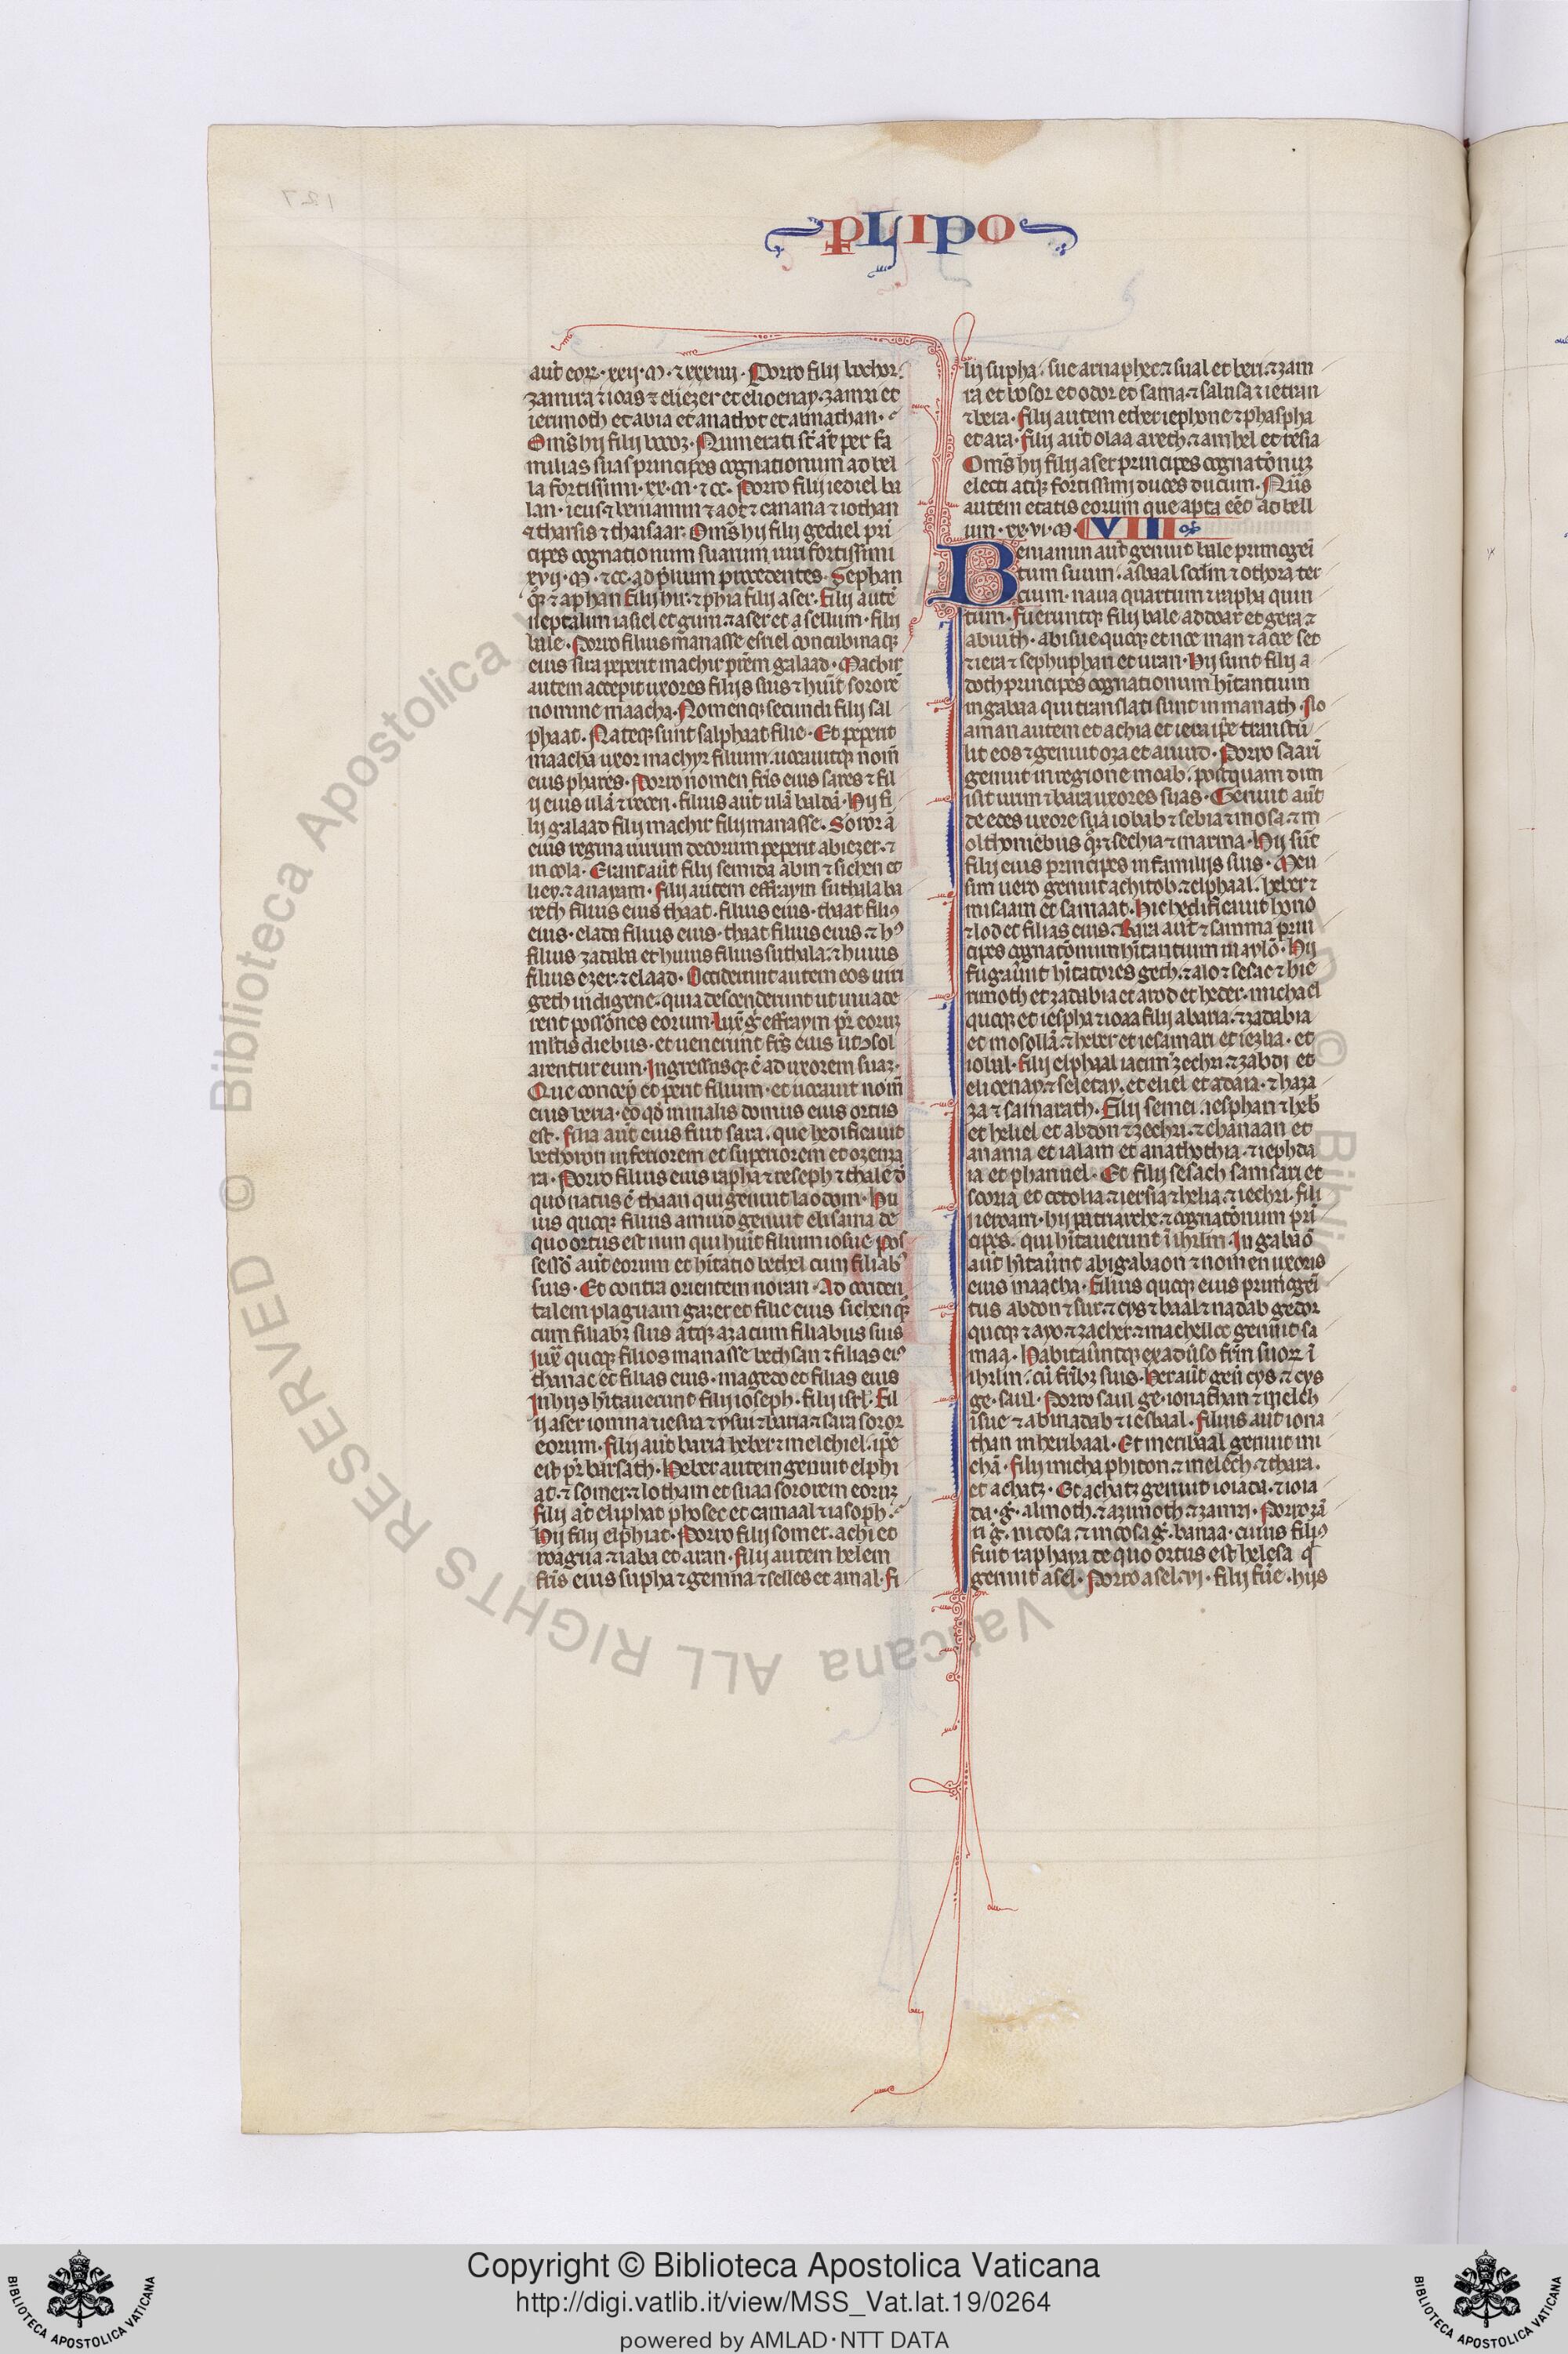 PLIPO
aut eoꝝ · xxij · M · ⁊ xxxiiij · Porro filij bochor ·
zamira ⁊ ioas ⁊ eliezer et elioenay · zamri et
ierimoth et abia et anathot et almathan ·
Om̄s hij filij bocoꝝ · Numerati st̄ at̄ per fa
milias suas principes cognationum ad bel
la fortissimi · xx · M · ⁊ cc · Porro filij iediel ba
lan · icus ⁊ beniamin ⁊ aot ⁊ canana ⁊ iothan
⁊ tharsis ⁊ thaisaar · Om̄s hij filij gediel pri
cipes cognationum suarum uiri fortissimi
xvij · M · ⁊ cc · ad p̄lium procedentes · Sephan
qꝫ ⁊ aphan filij hir · ⁊ phia filij aser · Filij autē
neptalim iasiel et guni ⁊ aser et asellum · filij
bale · Porro filius manasse esriel concubinaqꝫ
eius sira peperit machir pr̄em galaad · Machir
autem accepit uxores filijs suis ⁊ huīt sororē
nomine maacha · Nomenqꝫ secundi filij sal
phaat · Nateqꝫ sunt salphaat filie · Et peperit
maacha uxor machyr filium · uocauitqꝫ nom̄
eius phares · Porro nomen fr̄is eius sares ⁊ fil
ij eius ulā ⁊ recen · filius aut̄ ulā baldā · Hij fi
lij galaad filij machir filij manasse · Soror ā
eius regina uirum decorum peperit abiezer · ⁊
mcola · Erant aut̄ filij semida abin ⁊ sichen et
liey · ⁊ anayam · filij autem effraym suthala ba
reth filius eius thaat · filius eius · thaat filiꝰ
eius · elada filius eius · thaat filius eius ⁊ hꝰ
filius zadaba et huius filius suthala · ⁊ huius
filius ezer · ⁊ elaad · Occiderunt autem eos uiri
geth indigene · quia descenderunt ut inuade
rent possōnes eorum · Lux̄ g̊ effraym pr̄ eoruꝫ
ml̄tis diebus · et uenerunt fr̄s eius ut ↄsol
arentur eum · Ingressusqꝫ ē ad uxorem suaꝫ ·
Que concep̄ et pep̄it filium · et uocauit nom̄
eius beria · eo qd̄ in malis domus eius ortus
est · filia aut̄ eius fuit sara · que hedificauit
bethoron inferiorem et superiorem et ozensa
ra · Porro filius eius rapha ⁊ reseph ⁊ thale d̄
quo natus ē thaan qui genuit laodom · Hu
ius quoqꝫ filius amiud genuit elisama de
quo ortus est nun qui huīt filium iosue · pos
sessō aut̄ eorum et hītatio bethel cum filiabꝰ
suis · Et contra orientem noran · Ad occiden
talem plaguam gazer et filie eius sichen qꝫ
cum filiabꝫ suis atqꝫ aza cum filiabus suis
Iux̄ quoqꝫ filios manasse bethsan ⁊ filias eiꝰ
thanac et filias eius · magedo et filias eius
In hijs hītauerunt filij ioseph · filij isrl̄ · Fil
ij aser iomna ⁊ iesua ⁊ ysui ⁊ baria ⁊ sara soror
eorum · filij aut̄ baria heber ⁊ melchiel · ip̄e
est pr̄ barsath · Heber autem genuit elphi
at · ⁊ somer · ⁊ lotham et suaa sororem eoruꝫ
filij at̄ eliphat phosec et camaal ⁊ iasoph ·
Hij filij elphiat · Porro filij somer · achi et
roagua ⁊ iaba et aran · filij autem helem
fr̄is eius supha ⁊ gemna ⁊ selles et amal · fi
lij supha · sue arnaphet · ⁊ sual et beri · ⁊ zam
ra et bosor et odor et sama · ⁊ salusa ⁊ ietran
⁊ bera · filij autem ether iephone ⁊ phaspha
et ara · filij aut̄ olaa arech · ⁊ amhel et resia
Om̄s hij filij aser principes cognatōnuꝫ
electi atqꝫ fortissimi duces ducum · Nūs
autem etatis eorum que apta eēt ad bell
um · xx · vi · M · VIII
Beniamin aut̄ genuit bale primogeī
tum suum · asbaal scd̄m ⁊ othora ter
cium · naua quartum ⁊ rapha quin
tum · Fueruntqꝫ filij bale addoar et gera ⁊
abiuth · abisue quoqꝫ et noe man ⁊ acoe set
⁊ iera ⁊ sephuphan et uran · Hij sunt filij a
doth principes cognationum hītantium
in gabaa qui translati sunt in manath · No
aman autem et achia et iera ip̄e transtu
lit eos ⁊ genuit oza et auiud · Porro saari
genuit in regione moab · postquam dim
isit urim ⁊ bara uxores suas · Genuit aut̄
de edes uxore sua iobab ⁊ sebia ⁊ mosa · ⁊ m
olthoniebus qꝫ ⁊ sechia ⁊ marma · Hij sūt
filij eius principes in familijs suis · Meu
sim uero genuit achitob · ⁊ elphaal · heber ⁊
misaam et samaat · Hic hedificauit hono
⁊ lod et filias eius · Bara aut̄ ⁊ samma prin
cipes cognatōnum hītantium in aylō · Hij
fugaūnt hītatores geth · ⁊ aio ⁊ sesac ⁊ hie
rimoth et zadabia et arod et heder · michael
quoqꝫ et iespha ⁊ ioaa filij abaria · ⁊ zadabia
et mosollā · ⁊ heber et iesamari et iezlia · et
iobal · filij elphaal iacim zechri ⁊ zabdi et
elioenay · ⁊ seletay · et eliel et adaia · ⁊ baza
za ⁊ samarath · Filij semei · iesphan ⁊ heb̄
et heliel et abdon ⁊ zechri · ⁊ chanaan et
anania et ialam et anathothia · ⁊ iephda
ia et phanuel · Et filij sesach samsari et
scoria et cotolia · ⁊ iersia ⁊ helia · ⁊ iechri · fili
j ieroam · hij patriarche · ⁊ cognatōnum pri
cipes · qui hītauerunt ī ihrl̄m · In gabaō
aut̄ hītaūnt abigabaon ⁊ nomen uxoris
eius maacha · filius quoqꝫ eius primogeī
tus abdon ⁊ sur · ⁊ cys ⁊ baal ⁊ nadab gedor
quoqꝫ ⁊ ayo · ⁊ zacher · ⁊ machelloe genuit sa
maa · Habitaūntqꝫ ex aduerso fr̄m suoꝝ ī
ihrl̄m · cū fr̄ibꝫ suis · Ner aut̄ geū cys · ⁊ cys
ge · saul · Porro saul ge · ionathan ⁊ melch
isue ⁊ abinadab ⁊ iesbaal · Filius aut̄ iona
than meribaal · Et meribaal genuit mi
chā · Filij micha phiton · ⁊ melech · ⁊ thara ·
et achatz · Et achatz genuit ioiada · ⁊ ioia
da · g̊ · almoth · ⁊ azimoth · ⁊ zamri · Porro zā
ri g̊ · mosa · ⁊ mosa g̊ · banaa · cuius filiꝰ
fuit raphaya de quo ortus est helesa q̄
genuit asel · Porro asel · vj · filij fūe · hijs
Copyright © Biblioteca Apostolica Vaticana
http://digi.vatlib.it/view/MSS_Vat.lat.19/0264
powered by AMLAD·NTT DATA
BIBLIOTECA APOSTOLICA VATICANA
BIBLIOTECA APOSTOLICA VATICANA
© Biblioteca Apostolica Vaticana ALL RIGHTS RESERVED